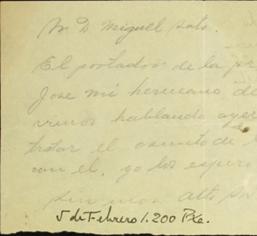 Sr. D. Miguel Soto.
El portador de la pr
Jose mi hermano de
vimos hablando ayer
tratar el asunto de
con el, yo los espero
sin mas atto
5 de Febrero 1.200 Pts.